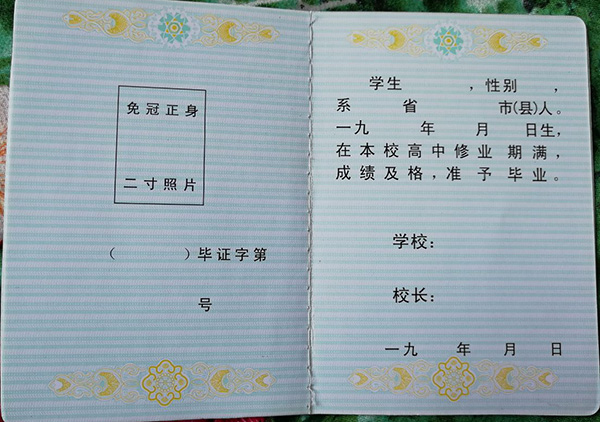 免冠正身
二寸照片
（ ）毕证字第
号
学生 ，性别 ，
系 省 市(县)人。
一九 年 月 日生，
在本校高中修业 期满，
成绩及格，准 予 毕业。
学校：
校长：
一九 年 月 日